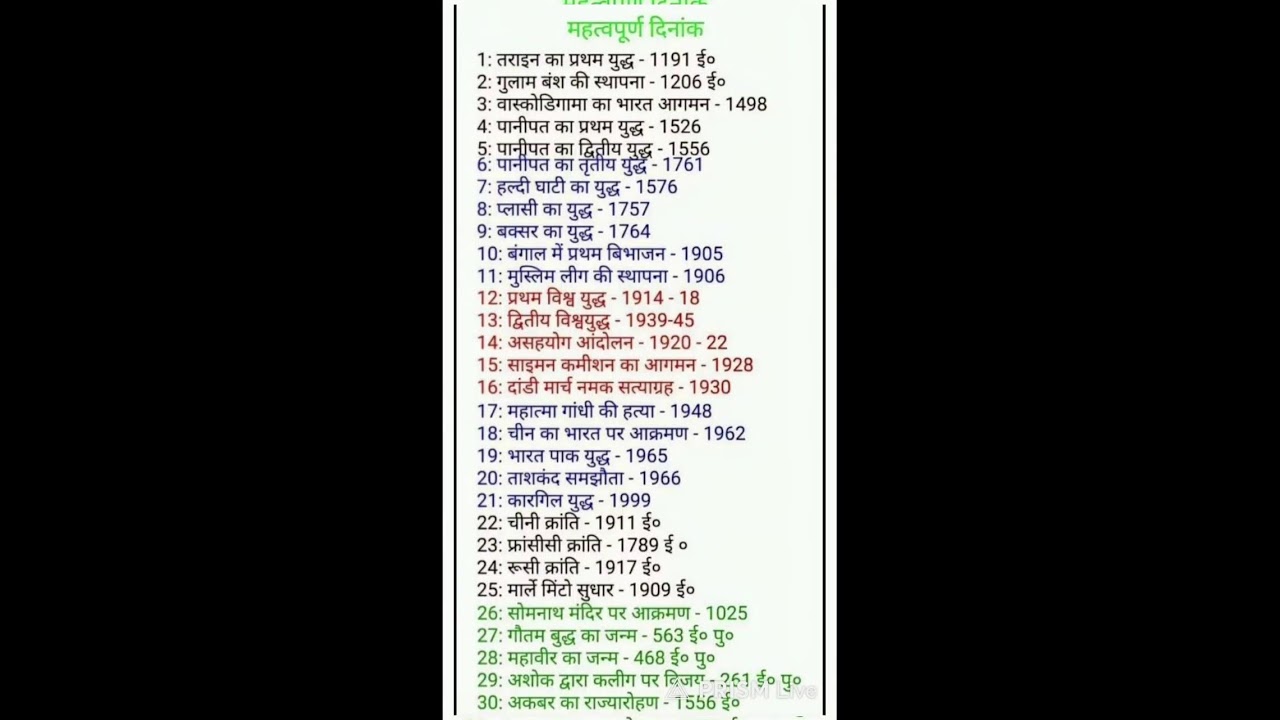 महत्वपूर्ण दिनांक
महत्वपूर्ण दिनांक
1: तराइन का प्रथम युद्ध - 1191 ई०
2: गुलाम बंश की स्थापना - 1206 ई०
3: वास्कोडिगामा का भारत आगमन - 1498
4: पानीपत का प्रथम युद्ध - 1526
5: पानीपत का द्वितीय युद्ध - 1556
6: पानीपत का तृतीय युद्ध - 1761
7: हल्दी घाटी का युद्ध - 1576
8: प्लासी का युद्ध - 1757
9: बक्सर का युद्ध - 1764
10: बंगाल में प्रथम बिभाजन - 1905
11: मुस्लिम लीग की स्थापना - 1906
12: प्रथम विश्व युद्ध - 1914 - 18
13: द्वितीय विश्वयुद्ध - 1939-45
14: असहयोग आंदोलन - 1920 - 22
15: साइमन कमीशन का आगमन - 1928
16: दांडी मार्च नमक सत्याग्रह - 1930
17: महात्मा गांधी की हत्या - 1948
18: चीन का भारत पर आक्रमण - 1962
19: भारत पाक युद्ध - 1965
20: ताशकंद समझौता - 1966
21: कारगिल युद्ध - 1999
22: चीनी क्रांति - 1911 ई०
23: फ्रांसीसी क्रांति - 1789 ई ०
24: रूसी क्रांति - 1917 ई०
25: मार्ले मिंटो सुधार - 1909 ई०
26: सोमनाथ मंदिर पर आक्रमण - 1025
27: गौतम बुद्ध का जन्म - 563 ई० पु०
28: महावीर का जन्म - 468 ई० पु०
29: अशोक द्वारा कलीग पर विजय - 261 ई० पु०
PRISM Live
30: अकबर का राज्यारोहण - 1556 ई०